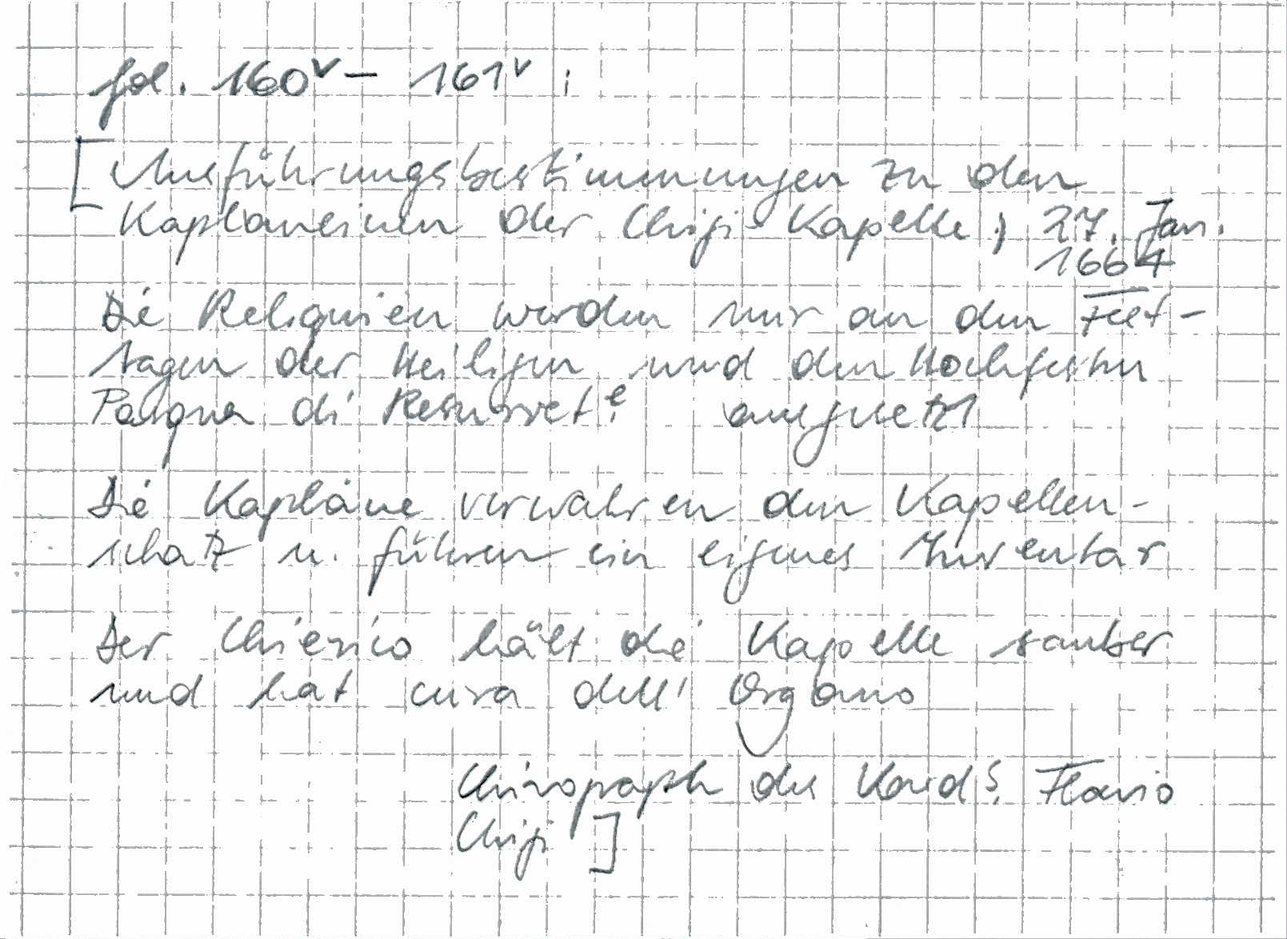 fol. 160v – 161v :
[Ausführungsbestimmungen zu den
Kaplaneien der Chigi-Kapelle, 27. Jan.
1664
Die Reliquien werden nur an den Fest-
tagen der Heiligen und den Hochfesten
Pasqua di Resurret.e ausgesetzt
Die Kapläne verwahren den Kapellen-
schatz u. führen ein eigenes Inventar
Der Chierico hält die Kapelle sauber
und hat cura dell' Organo
Chirograph des Kard.s Flavio
Chigi]